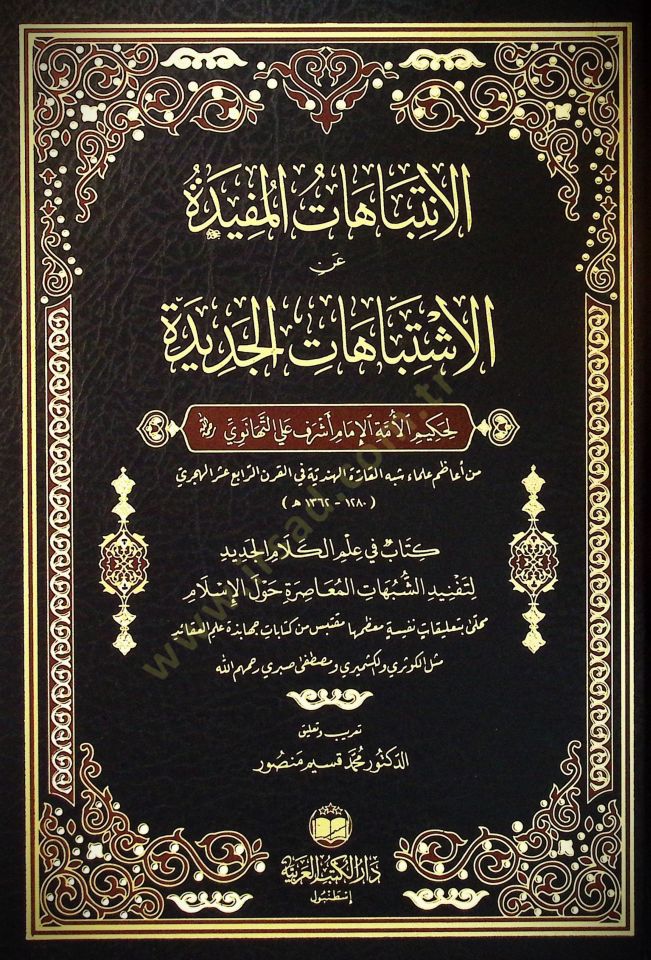 الانتباهات المفيدة
عن
الاشتباهات الجديدة
لحكيم الأمة الإمام أشرف علي التهانوي رحمه الله
من أعاظم علماء شبه القارة الهندية في القرن الرابع عشر الهجري
(١٢٨٠ - ١٣٦٢ هـ)
كتاب في علم الكلام الجديد
لتفنيد الشبهات المعاصرة حول الإسلام
محلى بتعليقات نفيسة معظمها مقتبس من كتابات جهابذة علم العقائد
مثل الكوثري والكشميري ومصطفى صبري رحمهم الله
تعريب وتعليق
الدكتور محمد قسيم منصور
دار الكتب العربية
إسطنبول